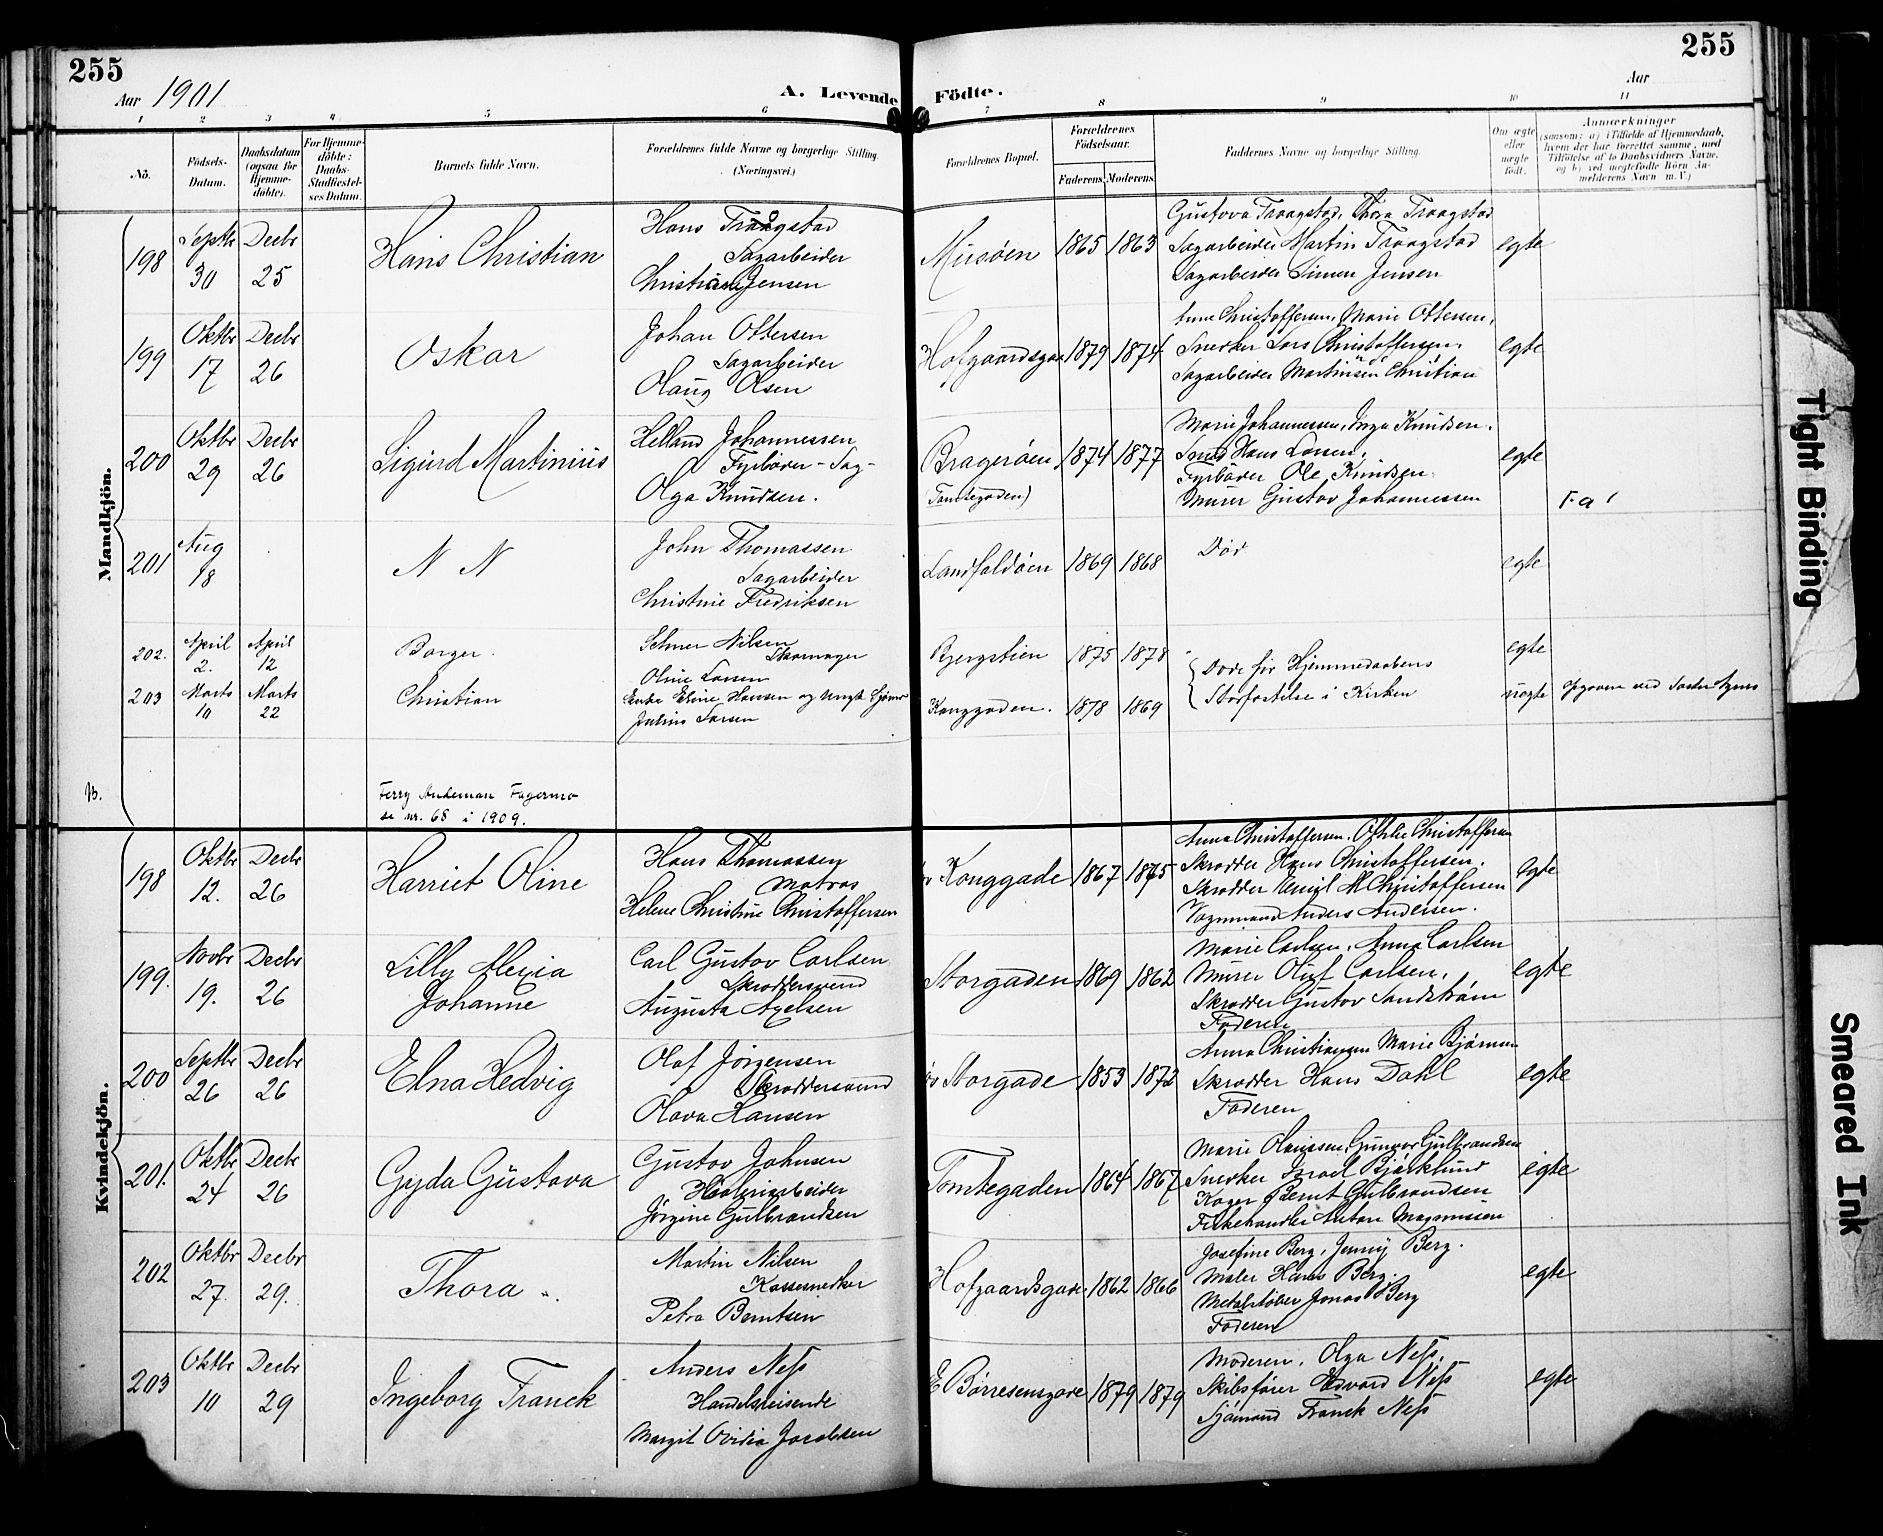 255
255
Aar 1901
A. Levende Födte.
Aar
1 2 3 4 5 6 7 8 9 10 11
No.
Födsels-Datum.
Daabsdatum (ogsaa for Hjemme-döbte).
For Hjemme-döbte: Daabs-Stadfæstel-ses Datum.
Barnets fulde Navn.
Forældrenes fulde Navne og borgerlige Stilling (Næringsvei.)
Forældrenes Bopæl.
Forældrenes Födselsaar.
Faderens Moderens
Faddernes Navne og borgerlige Stilling.
Om ægte eller uægte födt.
Anmærkninger
(saasom: a) i Tilfælde af Hjemmedaab,
hvem der har forrettet samme, med
Tilföielse af to Daabsvidners Navne,
og b) ved uægtefödte Börn An-
melderens Navn m. V.)
Mandkjön.
198
Septbr 30
Decbr 25
Hans Christian
Hans Traagstad
Sagarbeider
Christiane Jensen
Musøen
1865 1863
Gustava Traagstad, Thora Traagstad
Sagarbeider Martin Traagstad
Sagarbeider Simen Jensen
egte
199
Oktbr 17
Decbr 26
Oskar
Johan Ottersen
Sagarbeider
Olaug Olsen
Hofgaardsgad
1879 1874
Anne Christoffersen, Marie Ottersen,
Snedker Lars Christoffersen,
Sagarbeider Martinsen Christian
egte
200
Oktbr 29
Decbr 26
Sigurd Martinius
Helland Johannessen
Fyrbøder - Sag-
Olga Knudsen.
Bragerøen
(Tomtegaden)
1874 1877
Marie Johannessen, Inga Knudsen.
Hans Larsen,
Fyrbøder Ole Knudsen.
Murer Gustav Johannessen
egte
201
Aug 18
N N
John Thomassen
Sagarbeider
Christine Fredriksen
Landfaldøen
1869 1868
Død
egte
202.
April 2.
April 12
Borger.
Nilsen
Skomager
Oline Larsen
Bjergstien
1875 1878
Døde før Hjemmedaabens
Stadfæstelse i Kirken
egte
203
Marts 10
Marts 22
Christian
Enke Eline Hansen og Ungk. Sjømd
Julius Larsen
Konggaden.
1878 1869
uægte
Opgivne ved Søster Agnes
Ferry Andeman Fagermo
se nr. 68 i 1909.
Kvindekjön.
198
Oktbr 12.
Decbr 26
Harriet Oline
Hans Thomassen
Matros
Helene Christine Christoffersen
Konggade
1867 1875
Anna Christoffersen, Othilie Christoffersen
Skrædder Hans Christoffersen.
Skrædder Emil M Christoffersen
Vognmand Anders Andersen.
egte
199.
Novbr 19.
Decbr 26
Lilly Alexia
Johanne
Carl Gustav Carlsen
Skræddersvend
Augusta Axelsen
Storgaden
1869 1862
Marie Carlsen, Anna Carlsen
Murer Oluf Carlsen,
Skrædder Gustav Sandstrøm
Faderen
egte
200
Septbr 26
Decbr 26
Elna Hedvig
Olaf Jørgensen
Skræddersvend
Olava Hansen
Storgade
1853 1872
Anna Christiansen Marie Bjørnsen
Skrædder Hans Dahl
Faderen
egte
201.
Oktbr 24
Decbr 26
Gyda Gustava
Gustav Johnsen
Høvleriarbeider
Jørgine Gulbrandsen
Tomtegaden
1864 1867
Marie Olaussen, Gunvor Gulbrandsen
Snedker Israel Bjørklund
Kager Bernt Gulbrandsen
Fiskehandler Anton Magnussen
egte
202
Oktbr 27.
Decbr 29.
Thora
Martin Nilsen
Kassesnedker
Petra Berntsen
Hofgaardsgade
1862 1866
Josefine Berg, Jenny Berg.
Maler Hans Berg.
Metalstøber Jonas Berg
Faderen
egte
203
Oktbr 10
Decbr 29
Ingeborg Franck
Anders Ness
Handelsreisende
Margit Ovidia Jacobsen
E Børresensgade
1879 1879
Moderen, Olga Ness,
Skibsfører Edvard Ness
Sjømand Franck Ness
egte
Tight Binding
Smeared Ink